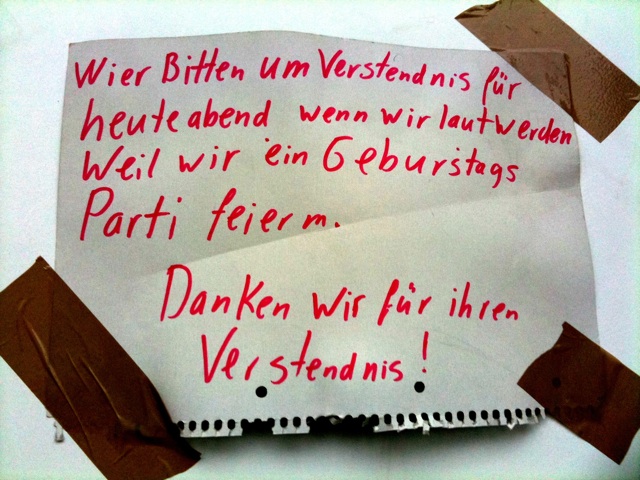 Wier Bitten um Verstendnis für
heute abend wenn wir laut werden
Weil wir ein Geburstags
Parti feierm.
Danken wir für ihren
Verstendnis!